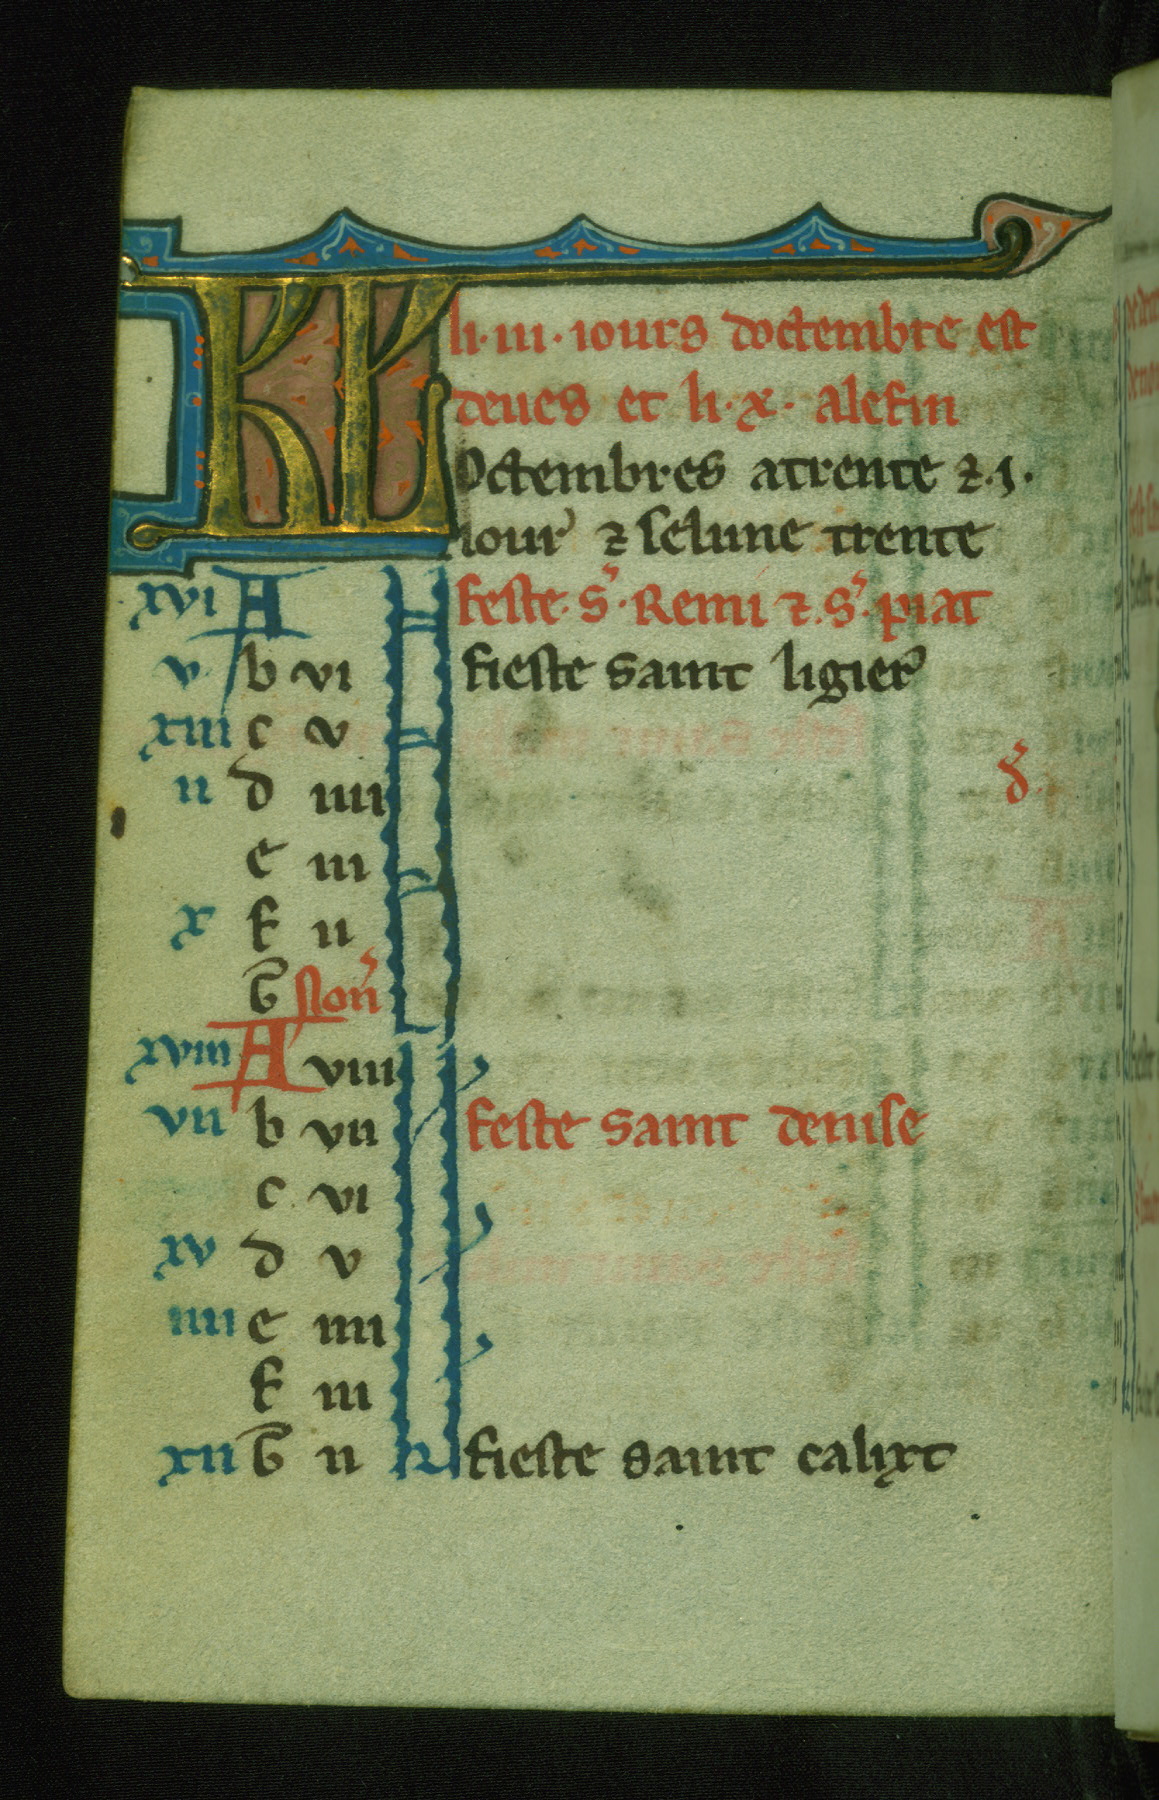 KL li·iii·iours doctembre est
deues et li·x· alefin
Octembres atrente ⁊·j·
iour ⁊ selune trente
xvi A feste·S'·Remi ⁊·S'·piat
v b vi fieste saint ligier
xiii c v
ii d iiii d'
e iii
x f ii
G Non'
xviii A viii
vii b vii feste saint denise
c vi
xv d v
iiii e iiii
f iii
xii G ii fieste saint calixt